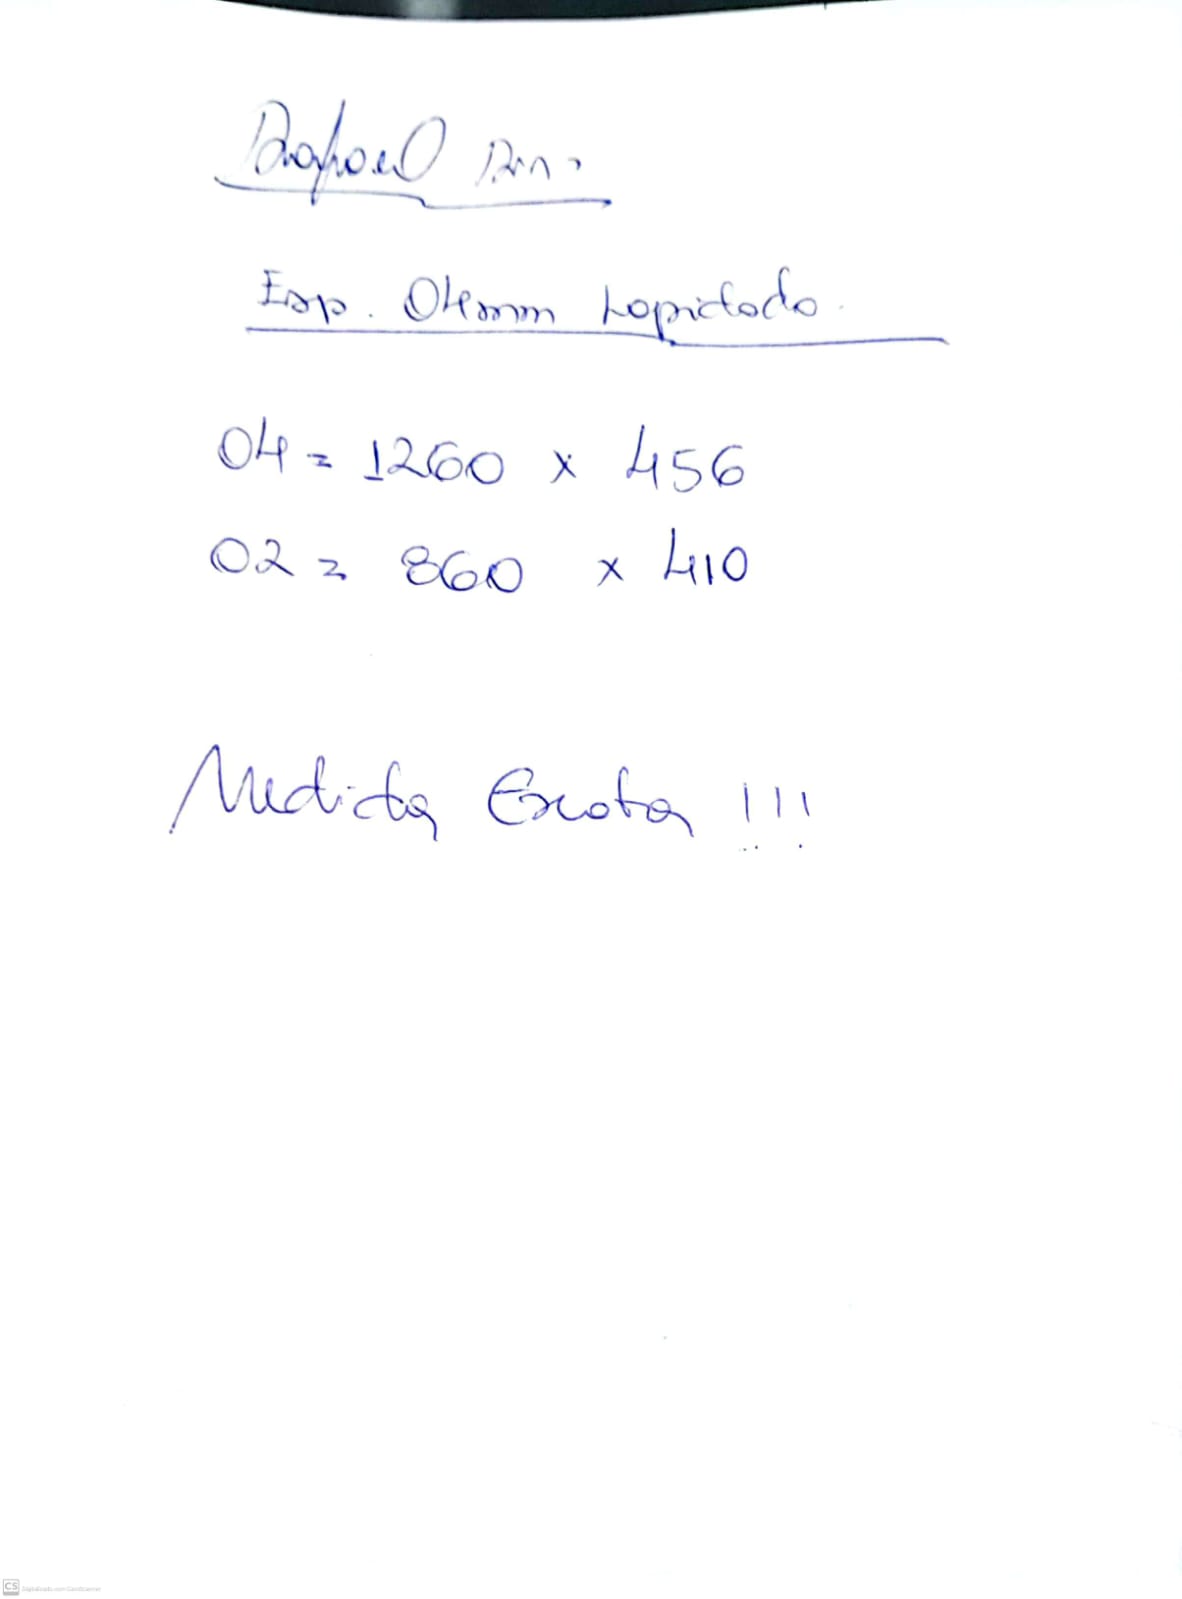 Rafael
Esp. 04mm Lapidado.
04 = 1260 x 456
02 = 860 x 410
Medida Exata !!!
CS Digitalizado com CamScanner